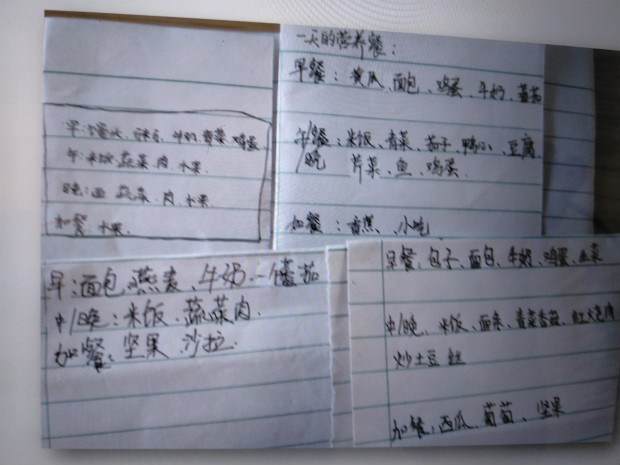 早: 牛奶 青菜 鸡蛋
午: 米饭 蔬菜 肉 水果
晚: 面 蔬菜 肉 水果
加餐: 水果
一天的营养餐:
早餐: 黄瓜、面包、鸡蛋、牛奶、番茄
午餐: 米饭、青菜、茄子、鸭肉、豆腐
/晚 芹菜、鱼、鸡蛋
加餐: 香蕉、小吃
早: 面包、燕麦、牛奶、一个番茄
中/晚: 米饭、蔬菜肉
加餐: 坚果 沙拉
早餐: 包子、面包、牛奶、鸡蛋、
中/晚、米饭、面条、青菜香菇、红烧肉
炒土豆丝
加餐: 西瓜、葡萄、坚果